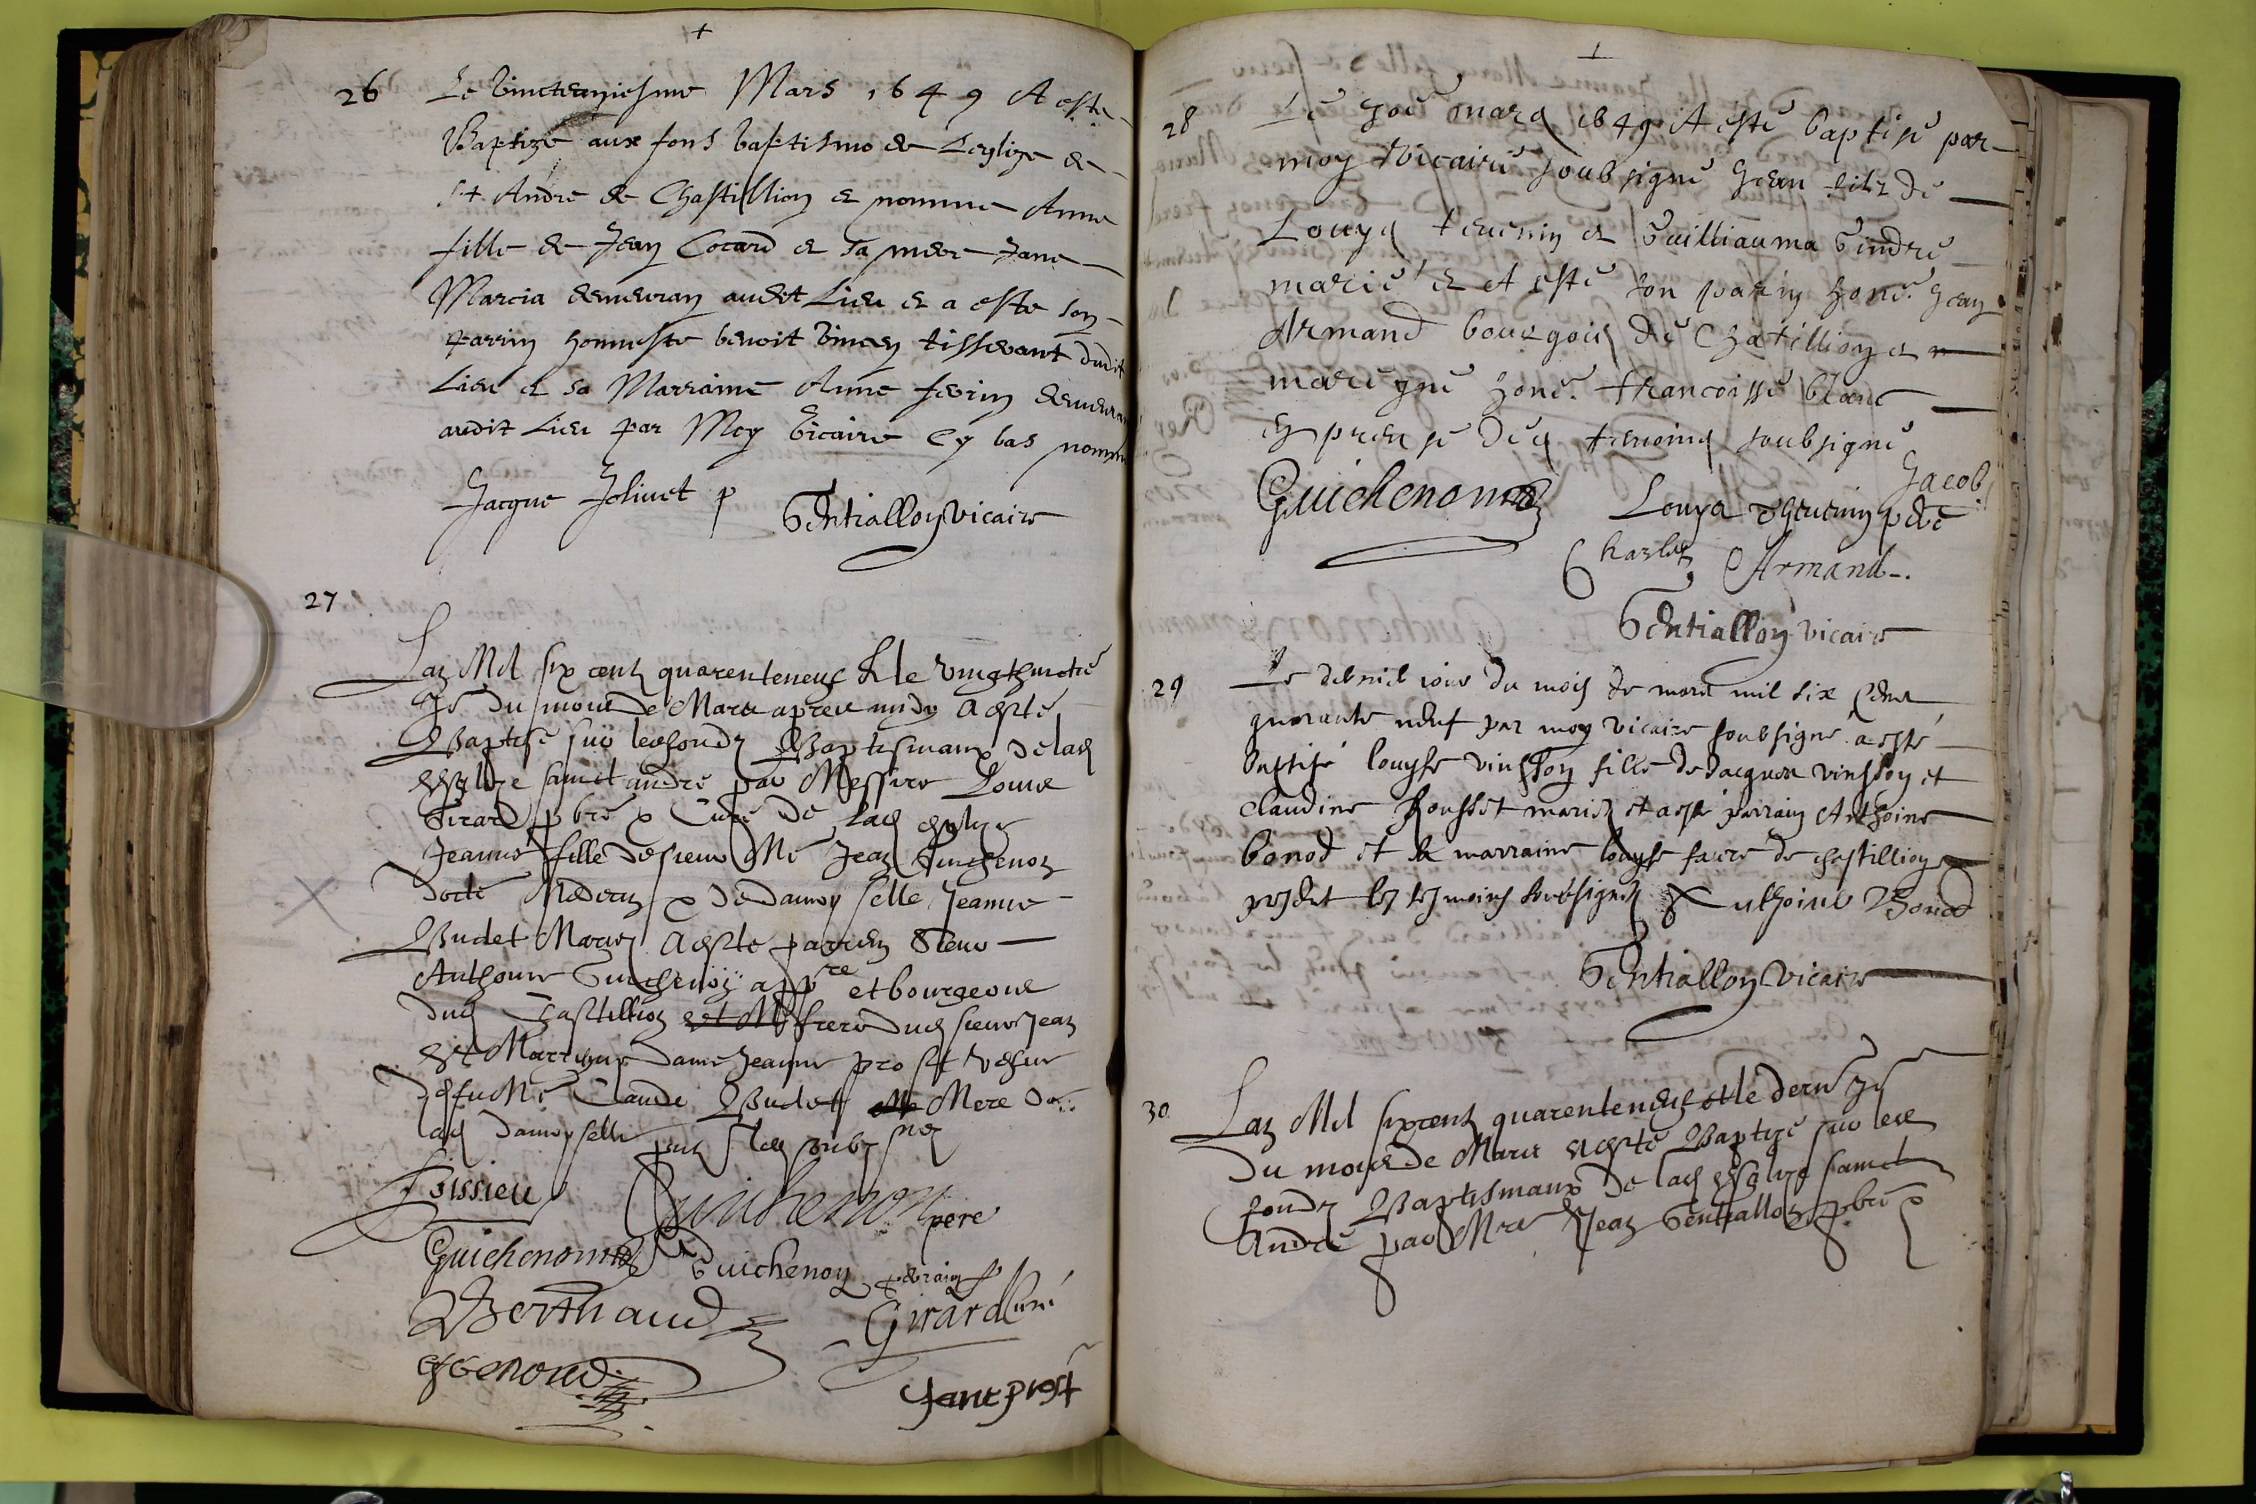 26
Le vincteuniesme Mars 1649 A este
Baptize aux fons baptismo de Leglize de
St Andre de Chastillion et nomme Anne
fille de Jean Cocard et sa mere Jane
Marcia demeuran audit Lieu et a este son
parrin honneste benoit tisserant dudit
Lieu et sa Marraine Anne demeuran
audit Lieu par Moy vicaire Cy bas nomme
Jacque Jolivet p Gentialloy vicaire
27
Lan Mil six centz quarenteneuf & le vingthuictie
Je du mois De Mars apres midy A este
Baptise sur les fondz Baptismaux De lad
esglize sainct andre par Messire Louis
Girard pbre & Cure De lad esglize
Jeanne fille de sieur Me Jean Guichenon
Docte Medecin & de damoyselle Jeanne
Budet Mariez A este parrin Sieur
Anthoine Guichenon appre et bourgeois
dud Chastillion et M frere dud sieur Jean
et Marrayne dame Jeanne prost vesve
De fu Me Claude Budet Mere De
lad damoyselle
Guichenon pere
Guichenon Guichenon parain
Berthaud Girard Curé
Jane prost
28
Le jour mars 1649 A este baptise par
moy vicaire soubsigne Jean filz de
Louys tevenin et Guilliauma Gindre
marie et A este son parin hone. Jean
Armand bourgois de Chatillion et
mareyne hone. francoisse blanc
en presence des temoins soubsigne
Jacob
Guichenon Louys thevenin pere
Charles Armand.
Gentialloy vicaire
29
Le dernié jour du mois de mars mil six cent
quarante neuf par moy vicaire soubsigné a esté
baptisé louyse vinsson fille de Jacques vinsson et
claudine Rousset mariez et a esté parrain Anthoine
bonod et la marraine louyse favre de chastillion
present les tesmoins soubsignez Anthoine Bonod
Gentialloy vicaire
30
Lan Mil sixcentz quarenteneuf et le dernier
Du moys de Mars A este Baptizé sur les
fondz Baptismaux De lad esglize sainct
André par Mre Jean Gentialloz pbre &